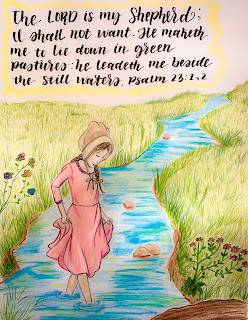 The LORD is my Shepherd;
I shall not want. He maketh
me to lie down in green
pastures: he leadeth me beside
the still waters. Psalm 23:1,2